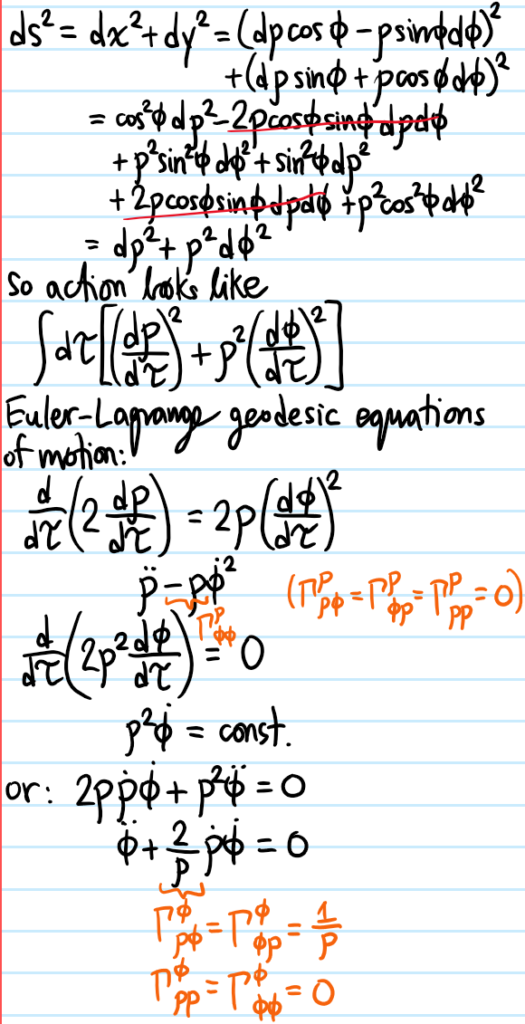 ds² = dx² + dy² = (dρcosϕ − ρsinϕdϕ)²
+ (dρsinϕ + ρcosϕdϕ)²
= cos²ϕdρ² − 2ρcosϕsinϕdρdϕ
+ ρ²sin²ϕdϕ² + sin²ϕdρ²
+ 2ρcosϕsinϕdρdϕ + ρ²cos²ϕdϕ²
= dρ² + ρ²dϕ²
So action looks like
∫dτ[(dρ/dτ)² + ρ²(dϕ/dτ)²]
Euler-Lagrange geodesic equations
of motion:
d/dτ(2 dρ/dτ) = 2ρ(dϕ/dτ)²
ρ̈ − ρϕ̇² (Γ^ρ_ρϕ = Γ^ρ_ϕρ = Γ^ρ_ρρ = 0)
Γ^ρ_ϕϕ
d/dτ(2ρ² dϕ/dτ) = 0
ρ²ϕ̇ = const.
or: 2ρρ̇ϕ̇ + ρ²ϕ̈ = 0
ϕ̈ + 2/ρ ρ̇ϕ̇ = 0
Γ^ϕ_ρϕ = Γ^ϕ_ϕρ = 1/ρ
Γ^ϕ_ρρ = Γ^ϕ_ϕϕ = 0